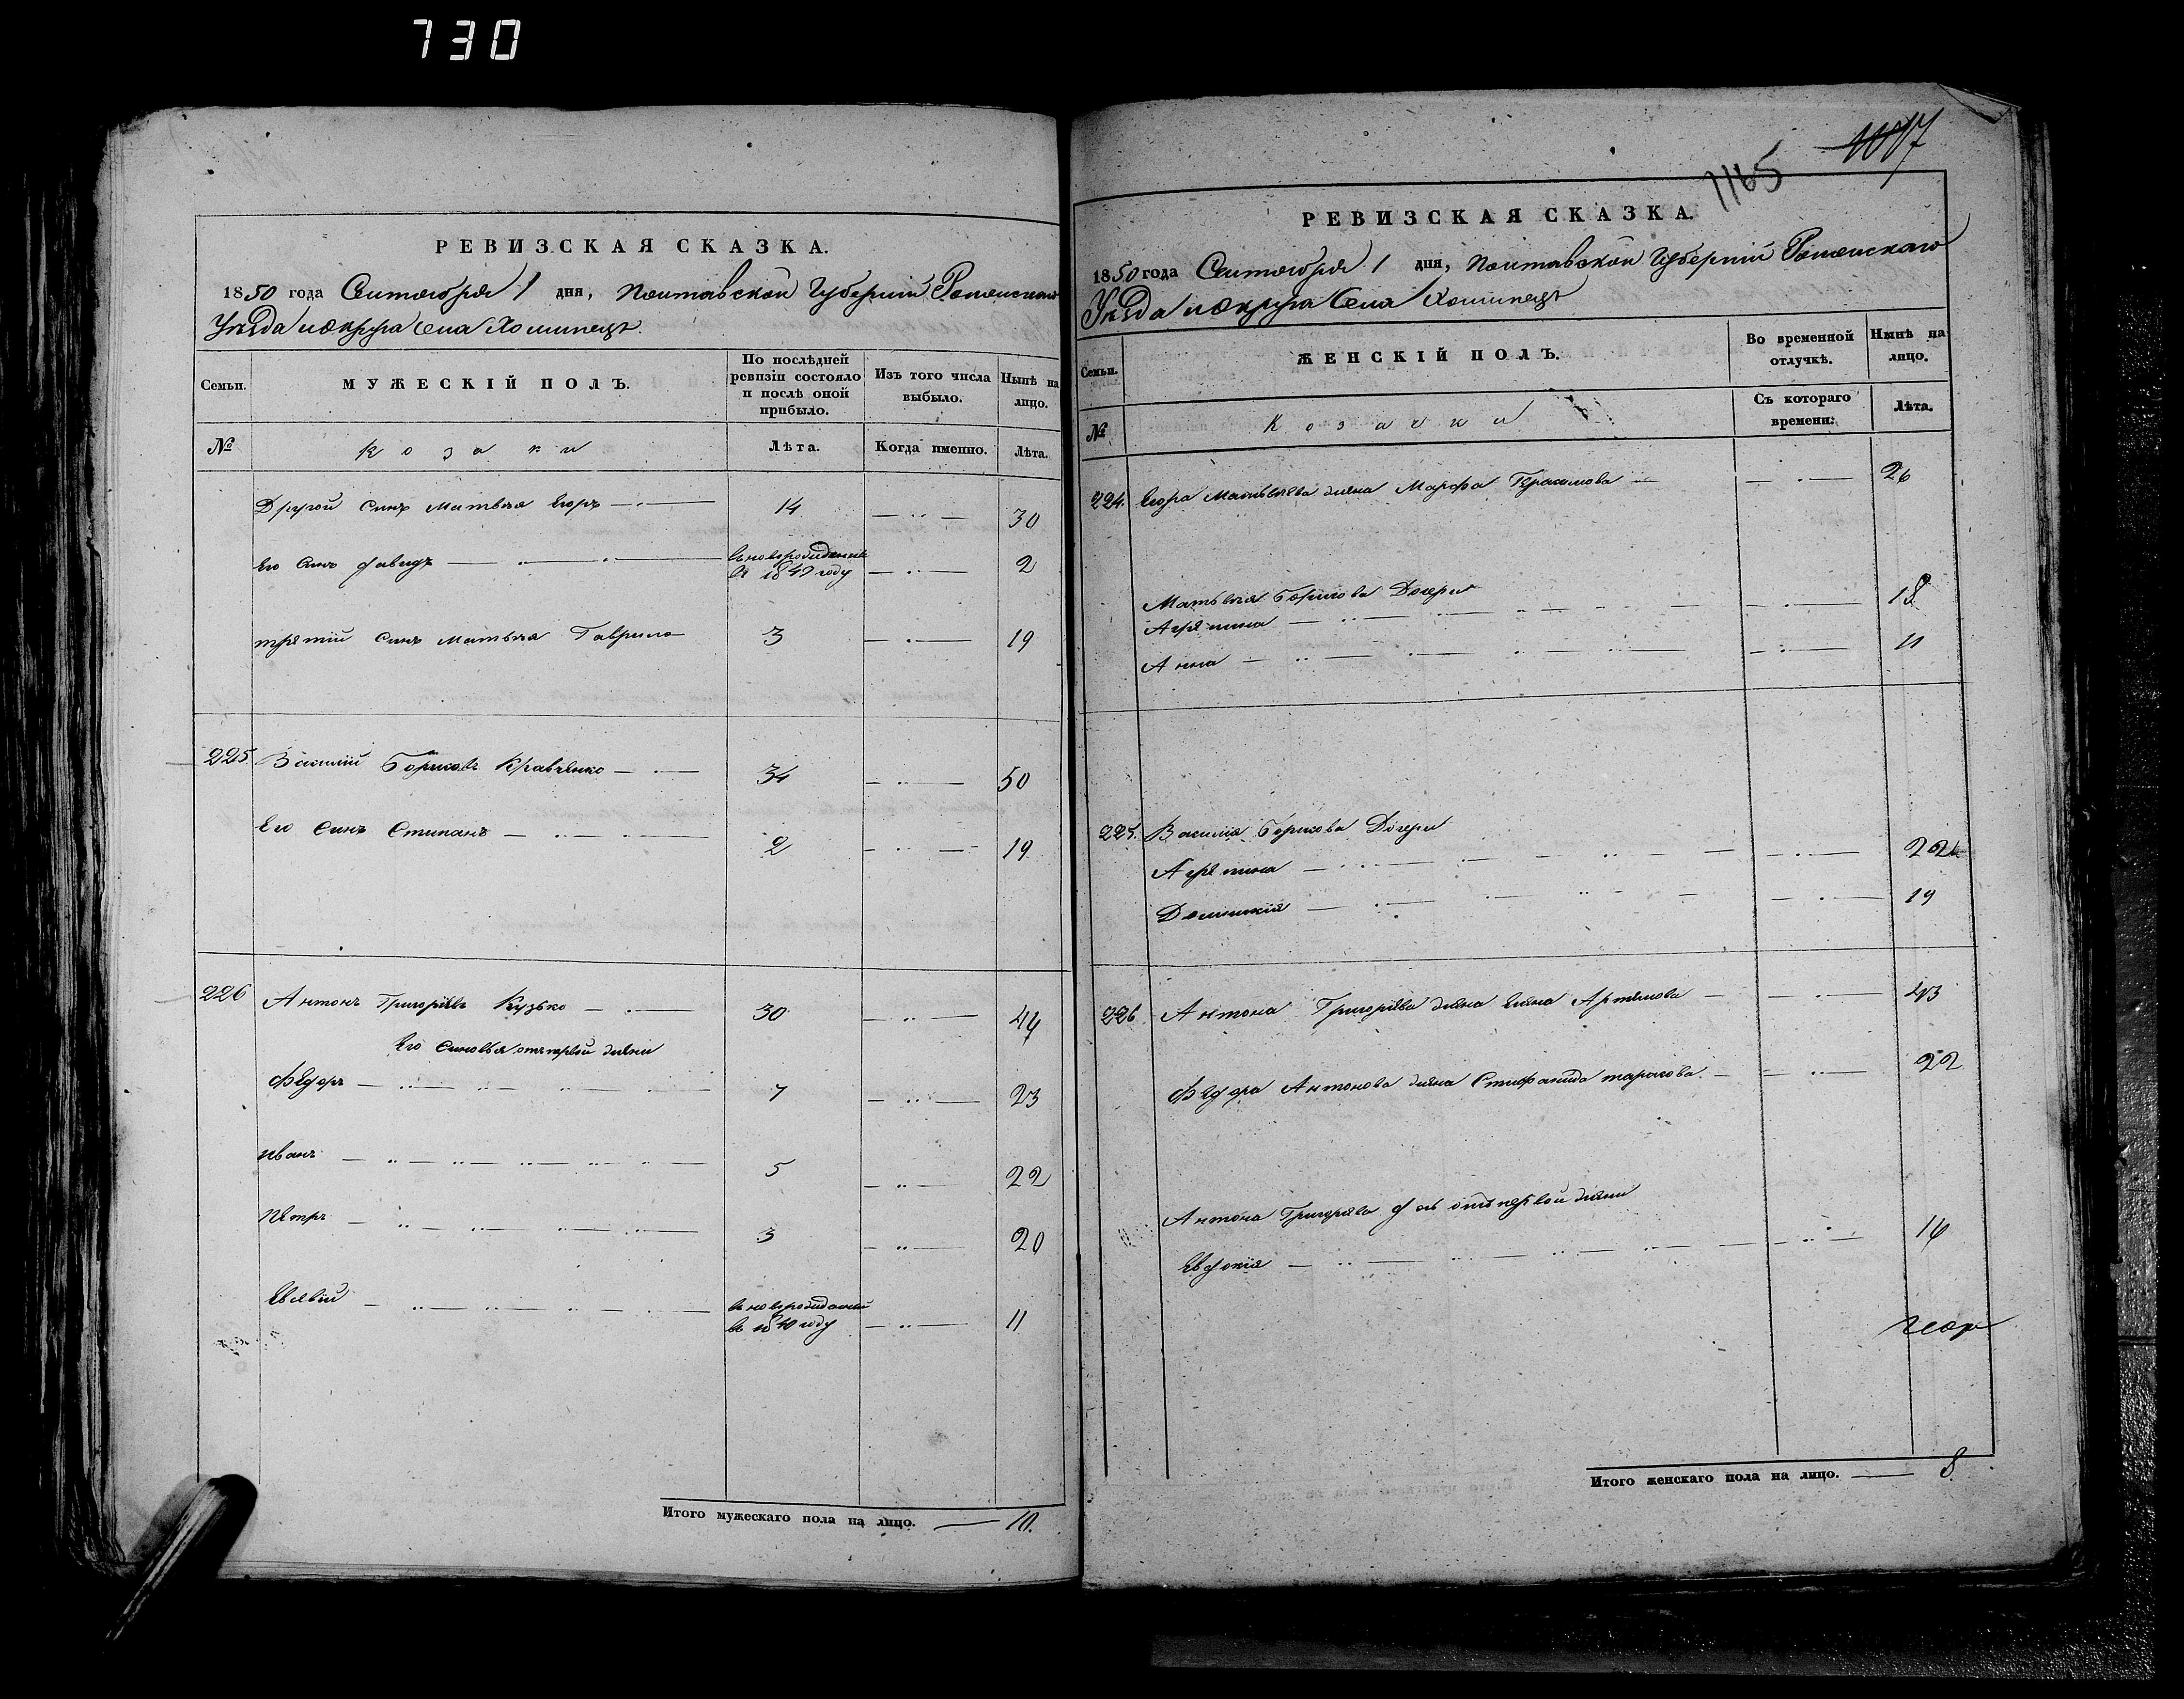 730
РЕВИЗСКАЯ СКАЗКА.
1850 года Сентября 1 дня, Полтавской Губернии Роменскаго
Уезда и округа Села Хоминецъ
Семьи.
МУЖЕСКІЙ ПОЛЪ.
По послѣдней ревизіи состояло и послѣ оной прибыло.
Изъ того числа выбыло.
Нынѣ на лицо.
№
Козаки
Лѣта.
Когда именно.
Лѣта.
Другой Синъ Матвея Егоръ 14 30
Его Синъ Давидъ 2
третій Синъ Матвея Гаврило 3 19
225. Василій Борисовъ Кравченко 34 50
Его Синъ Степанъ 2 19
226 Антонъ Григорьевъ Кузько 30 44
Его Синовья отъ первой жены
Федоръ 7 23
Иванъ 5 22
Петръ 3 20
Евсевій въ 1840 году 11
Итого мужескаго пола на лицо. 10.
1165
РЕВИЗСКАЯ СКАЗКА.
1850 года Сентября 1 дня, Полтавской Губерніи Роменскаго
Уезда и округа Села Хоминецъ
Семьи.
ЖЕНСКІЙ ПОЛЪ.
Во временной отлучкѣ.
Нынѣ на лицо.
№
Козачки
Съ котораго времени.
Лѣта.
224. Егора Матвеева жена Марфа Герасимова 26
Матвея Борисова Дочери
Агрепина 18
Анна 11
225. Василія Борисова Дочери
Агрепина 22
Доминикія 19
226 Антона Григорьева жена Елена Артемова 43
Федора Антонова жена Стефанида тарасова 22
Антона Григорьева дочь отъ первой жены
Евдокія 14
Итого женскаго пола на лицо. 8